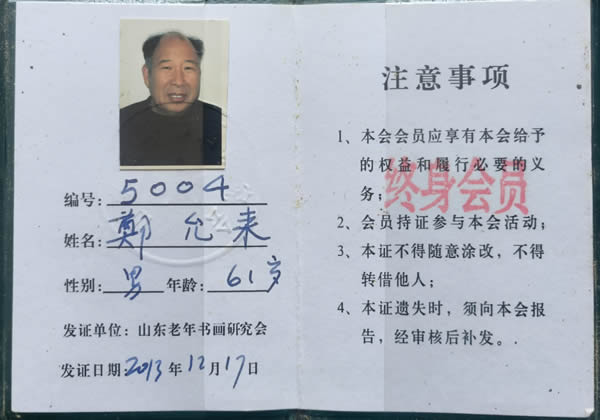 编号: 5004
姓名: 郑允来
性别: 男 年龄: 61岁
发证单位: 山东老年书画研究会
发证日期: 2013年12月17日
注意事项
1、本会会员应享有本会给予
的权益和履行必要的义
务;
2、会员持证参与本会活动;
3、本证不得随意涂改,不得
转借他人;
4、本证遗失时,须向本会报
告,经审核后补发。
终身会员